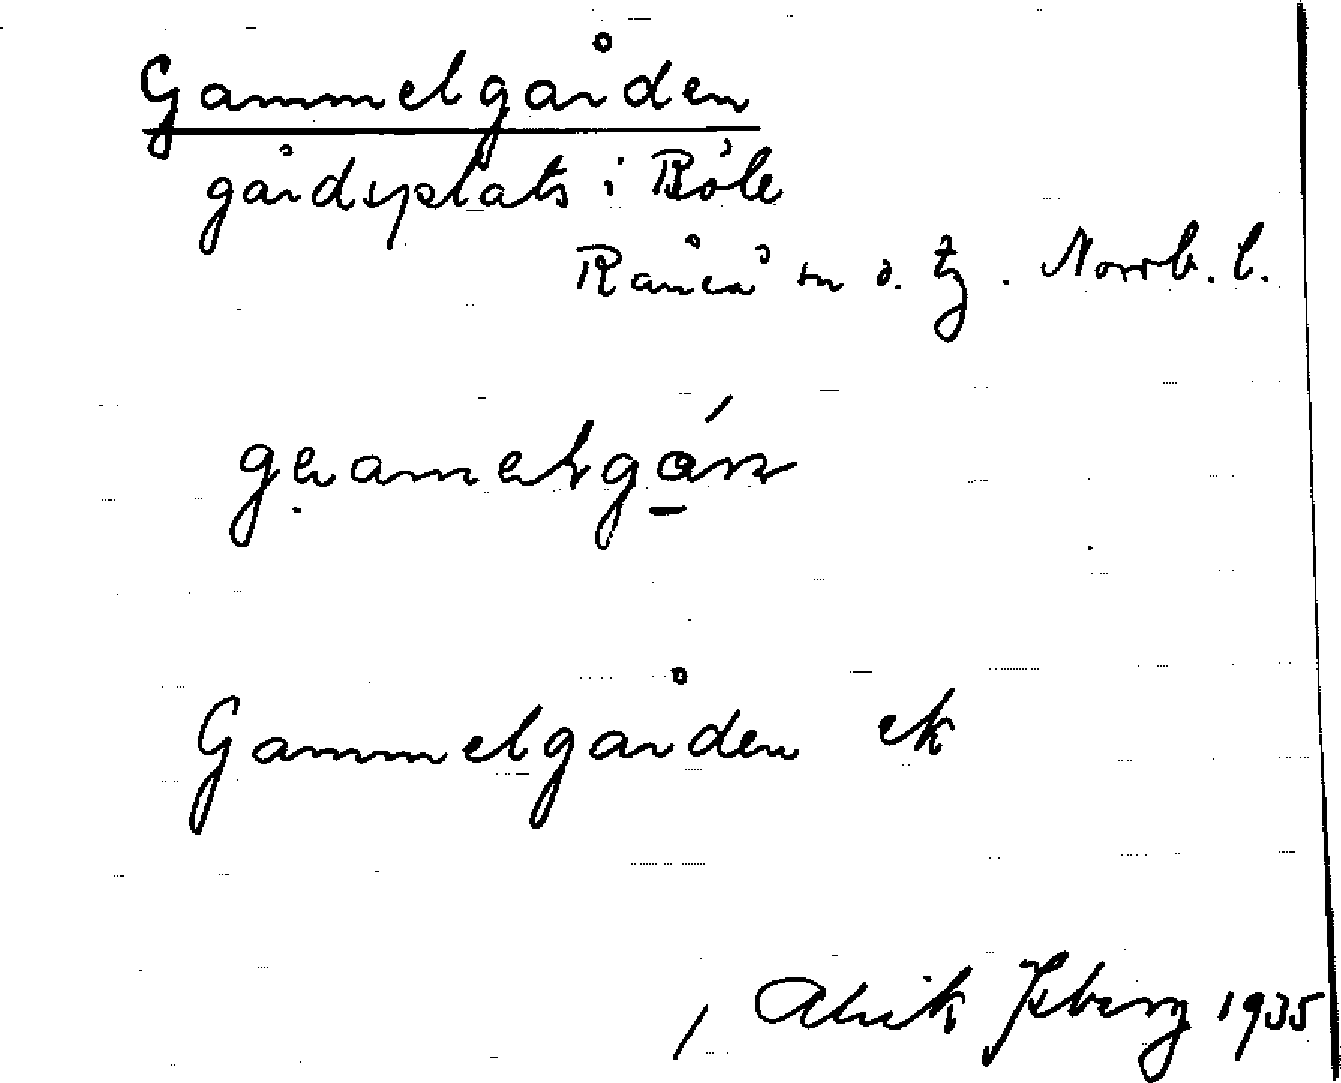 Gammelgården
gårdsplats i Böle
Råneå sn o. tg. Norrb. l.
Gammelgården ek
Alrik Isberg 1935